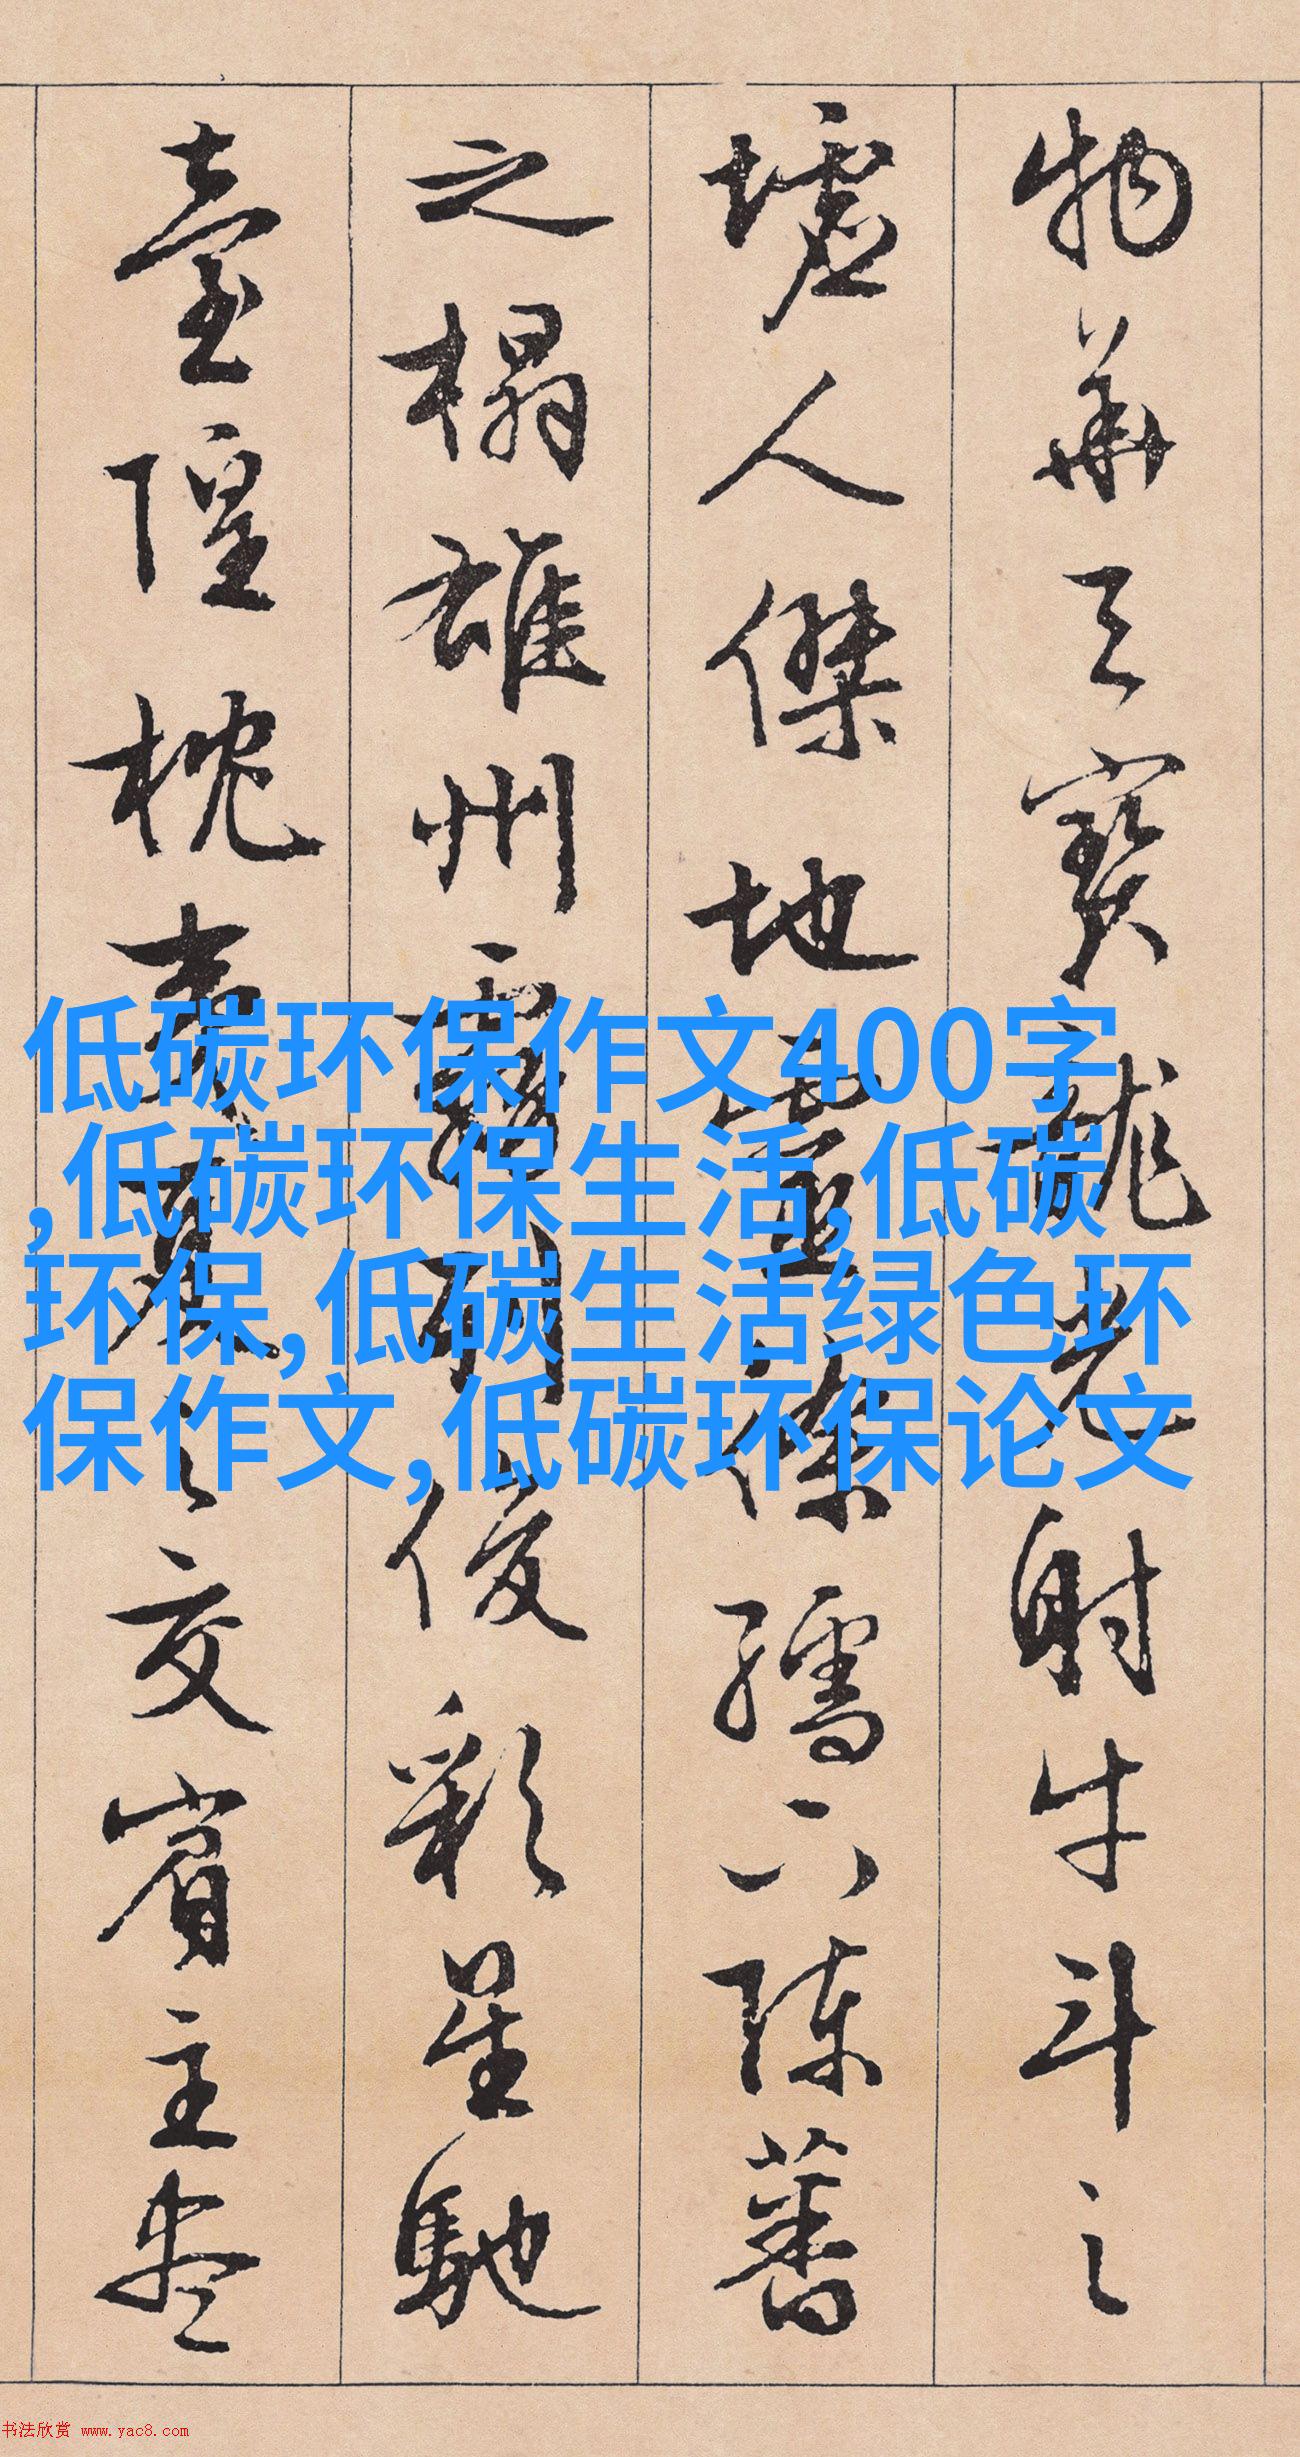 物華天寶龍光射牛斗之
墟人傑地靈徐孺下陳蕃
之榻雄州霧列俊彩星馳
臺隍枕夷夏之交賓主盡
低碳环保作文400字
,低碳环保生活,低碳
环保,低碳生活绿色环
保作文,低碳环保论文
书法欣赏 www.yac8.com